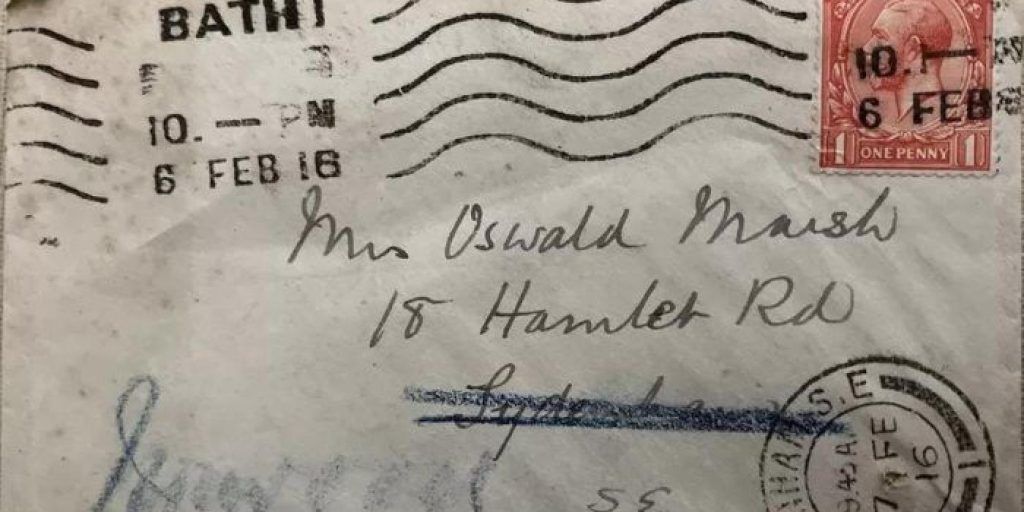 BATH
10. — PM
6 FEB 16
10. — P
6 FEB
1 ONE PENNY 1
Mrs Oswald Marsh
18 Hamlet Rd
Sydenham
S.E
HAM S.E
9.45 A
7 FE
16